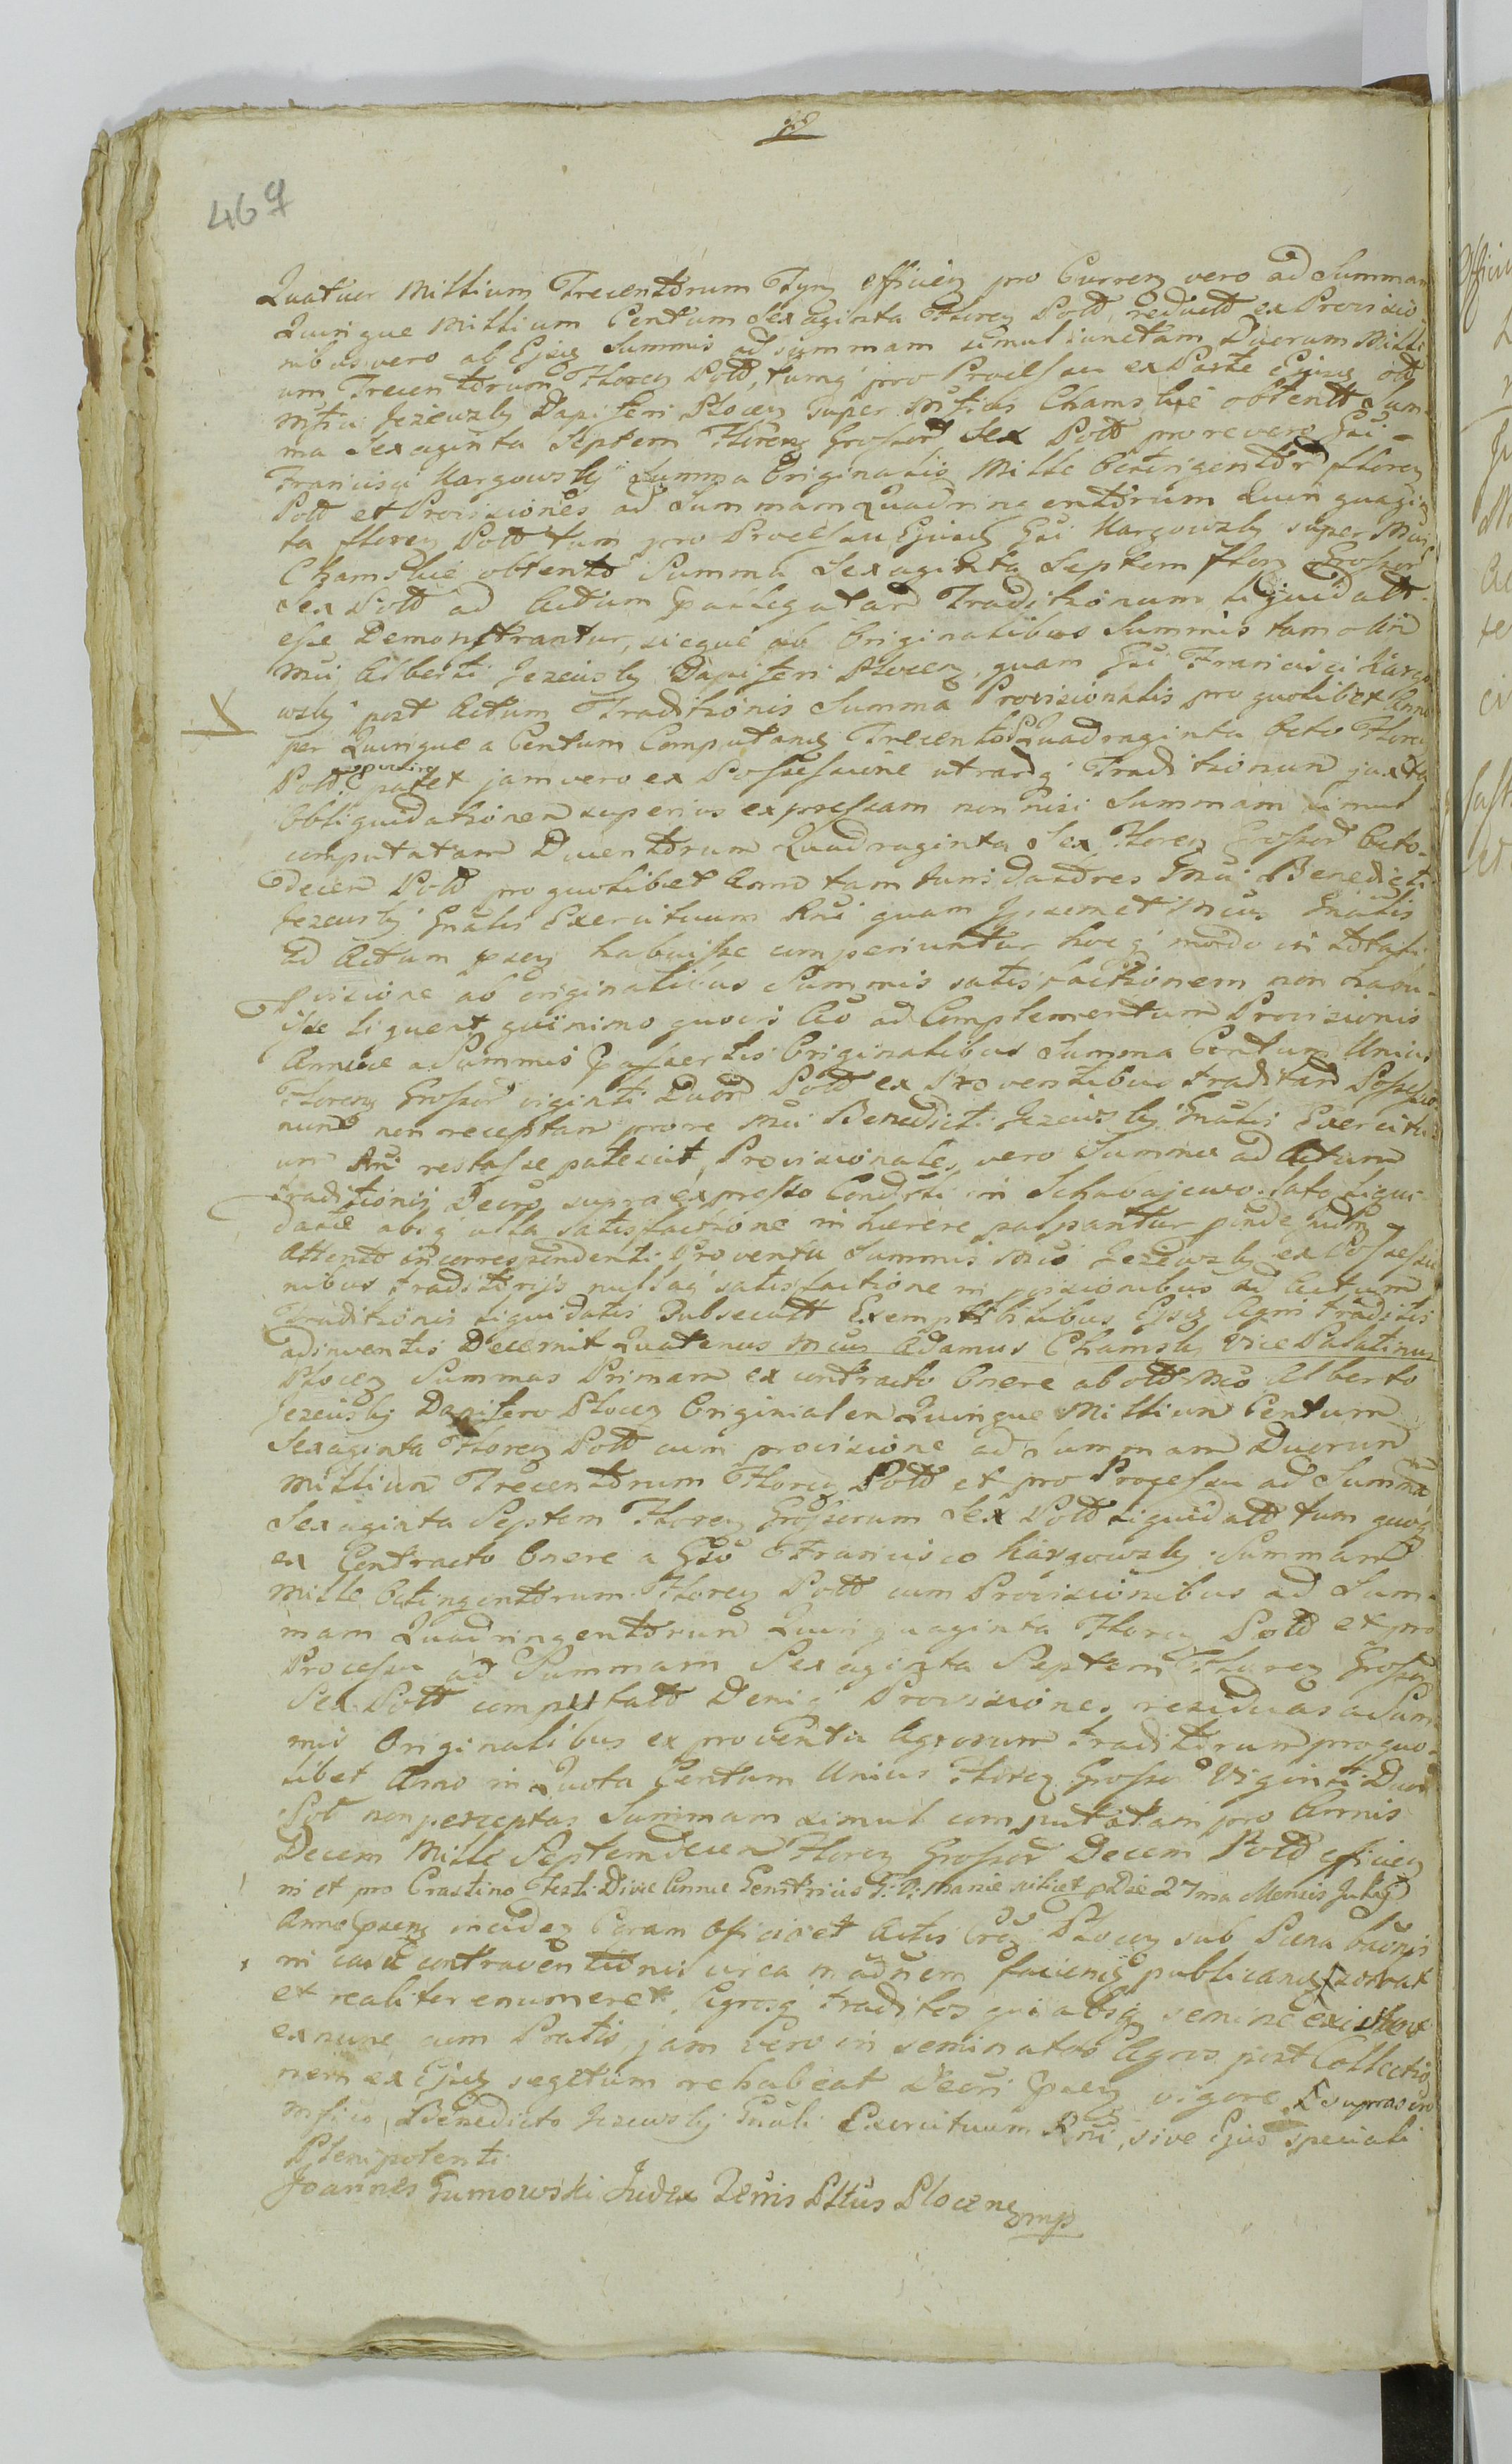 467
Quatuor Millium Trecentorum Tym efficien pro Curren vero ad Summam
Quinque Millium Centum Sexaginta Floren Poll reduct ex Provisio
nibus vero ab Ejus Summis ad summam simul iunctam Duorum Milli
um Trecentorum Floren Poll, tumq pro Processu ex Parte Ejus olim
Mfci Jezewsky Dapiferi Plocen super Mficis Chamskie obtent Sum
ma Sexaginta Septem Floren Grossor Sex Poll pro re vero Gsi
Francisci Kargowsky Summa Originalis Mille Octingentor floren
Poll et Provisiones ad Summam Quadringentorum Quinquagin
ta floren Poll tum pro Processu Ejusd Gsi Kargowsky super Mfis
Chamskie obtento Summa Sexaginta Septem floren Grossor
Sex Poll ad Actum Traditionum liquidatt
esse Demonstrantur, sicque ab Originalibus Summis tam olim
Mci Alberti Jezewsky Dapiferi Plocen, quam Gsi Francisci Kargo
wsky post Actum Traditionis Summa Provisionalis pro quolibet Anno
per Quinque a Centum Computand Trecentor Quadraginta Octo Floren
Poll patet jam vero ex Possessione utrarq Traditionum juxta
obliquidationem superius expressam non nisi Summam simul
computatam Ducentorum Quadraginta Sex Floren Grossor Octo
decem Poll pro quolibet Anno tam Mci Benedicti
Jezewsky Gnalis Exercituum Rni quam Ipsemet Mcus Gnalis
ad Actum psen habuisse comperiuntur hocq modo in totali
Provisione ab originalibus Summis satisfactionem non habu
isse liquent quinimo quovis Ao ad Complementum Provisionis
Annuae a Summis Originalibus Summa Centum Unius
Floren Grossor viginti Duor Poll ex Proventibus traditar Possessio
num non receptam pro re Mci Benedicti Jezewsky Gnalis Exercitu
um Rni restasse patescit, Provisionales vero Summae ad Actum
traditionis Decro supra expresso Condicti in Schabajewo lato liqui
datae absq ulla satisfactione inhaerere palpantur
Attento incorrespondenti Proventu Summis Mci Jezewsky ex Possessio
nibus traditorijs nullaq satisfactione in pvisionibus ad Actum
Traditionis liquidatis Subsecutt Exemptibilibus Ejus Agri traditis
adinventis Decernit Quatenus Mcus Adamus Chamsky Vice Palatinus
Plocen Summas Primam ex contracto Onere ab olim Mco Alberto
Jezewsky Dapifero Plocen Originalem Quinque Millium Centum
Sexaginta Floren Poll cum provisione ad Summam Duorum
Millium Trecentorum Floren Poll et pro Processu ad Summa
Sexaginta Septem Floren Grossorum Sex Poll liquidatt tum quoq
ex Contracto Onere a Gso Francisco Kargowsky Summam
Mille Octingentorum Floren Poll cum Provisionibus ad Sum
mam Quadringentorum Quinquaginta Floren Poll et pro
Processu ad Summam Sexaginta Septem Floren Grossor
Sex Poll computatt Deniq Provisiones residuas a Sum
mis Originalibus ex proventu Agrorum traditorum pro quo
libet Anno in Quota Centum Unius Floren Grossor Viginti Duor
Poll non perceptas Summam simul computatam pro Annis
Decem Mille Septemdecem Floren Grossor Decem Poll efficien
in et pro Crastino Festi Divae Annae Genitricis B: V: Mariae scilicet p Die 27ma Mensis Julij
Anno psen inciden Coram Officio et Actis Plocen sub Poena bannis
in casu contraventionis circa modnem faciens publicanq solvat
et realiter enumeret, Agrosq traditos qui absq semine existent
ex nunc cum Pratis, jam vero inseminatos Agros post Collectio
nem ex Ejus segetum rehabeat Decri psen vigore supra scro
Mfico Benedicto Jezewsky Gnali Exercituum Rni, sive Ejus speciali
Plenipotenti.
Joannes Gumowski Judex Terris Pltus Plocens mp